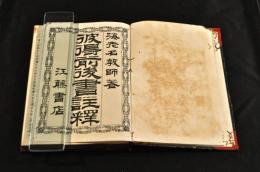 海老名彈師著
彼得前後書註釋
江藤書店